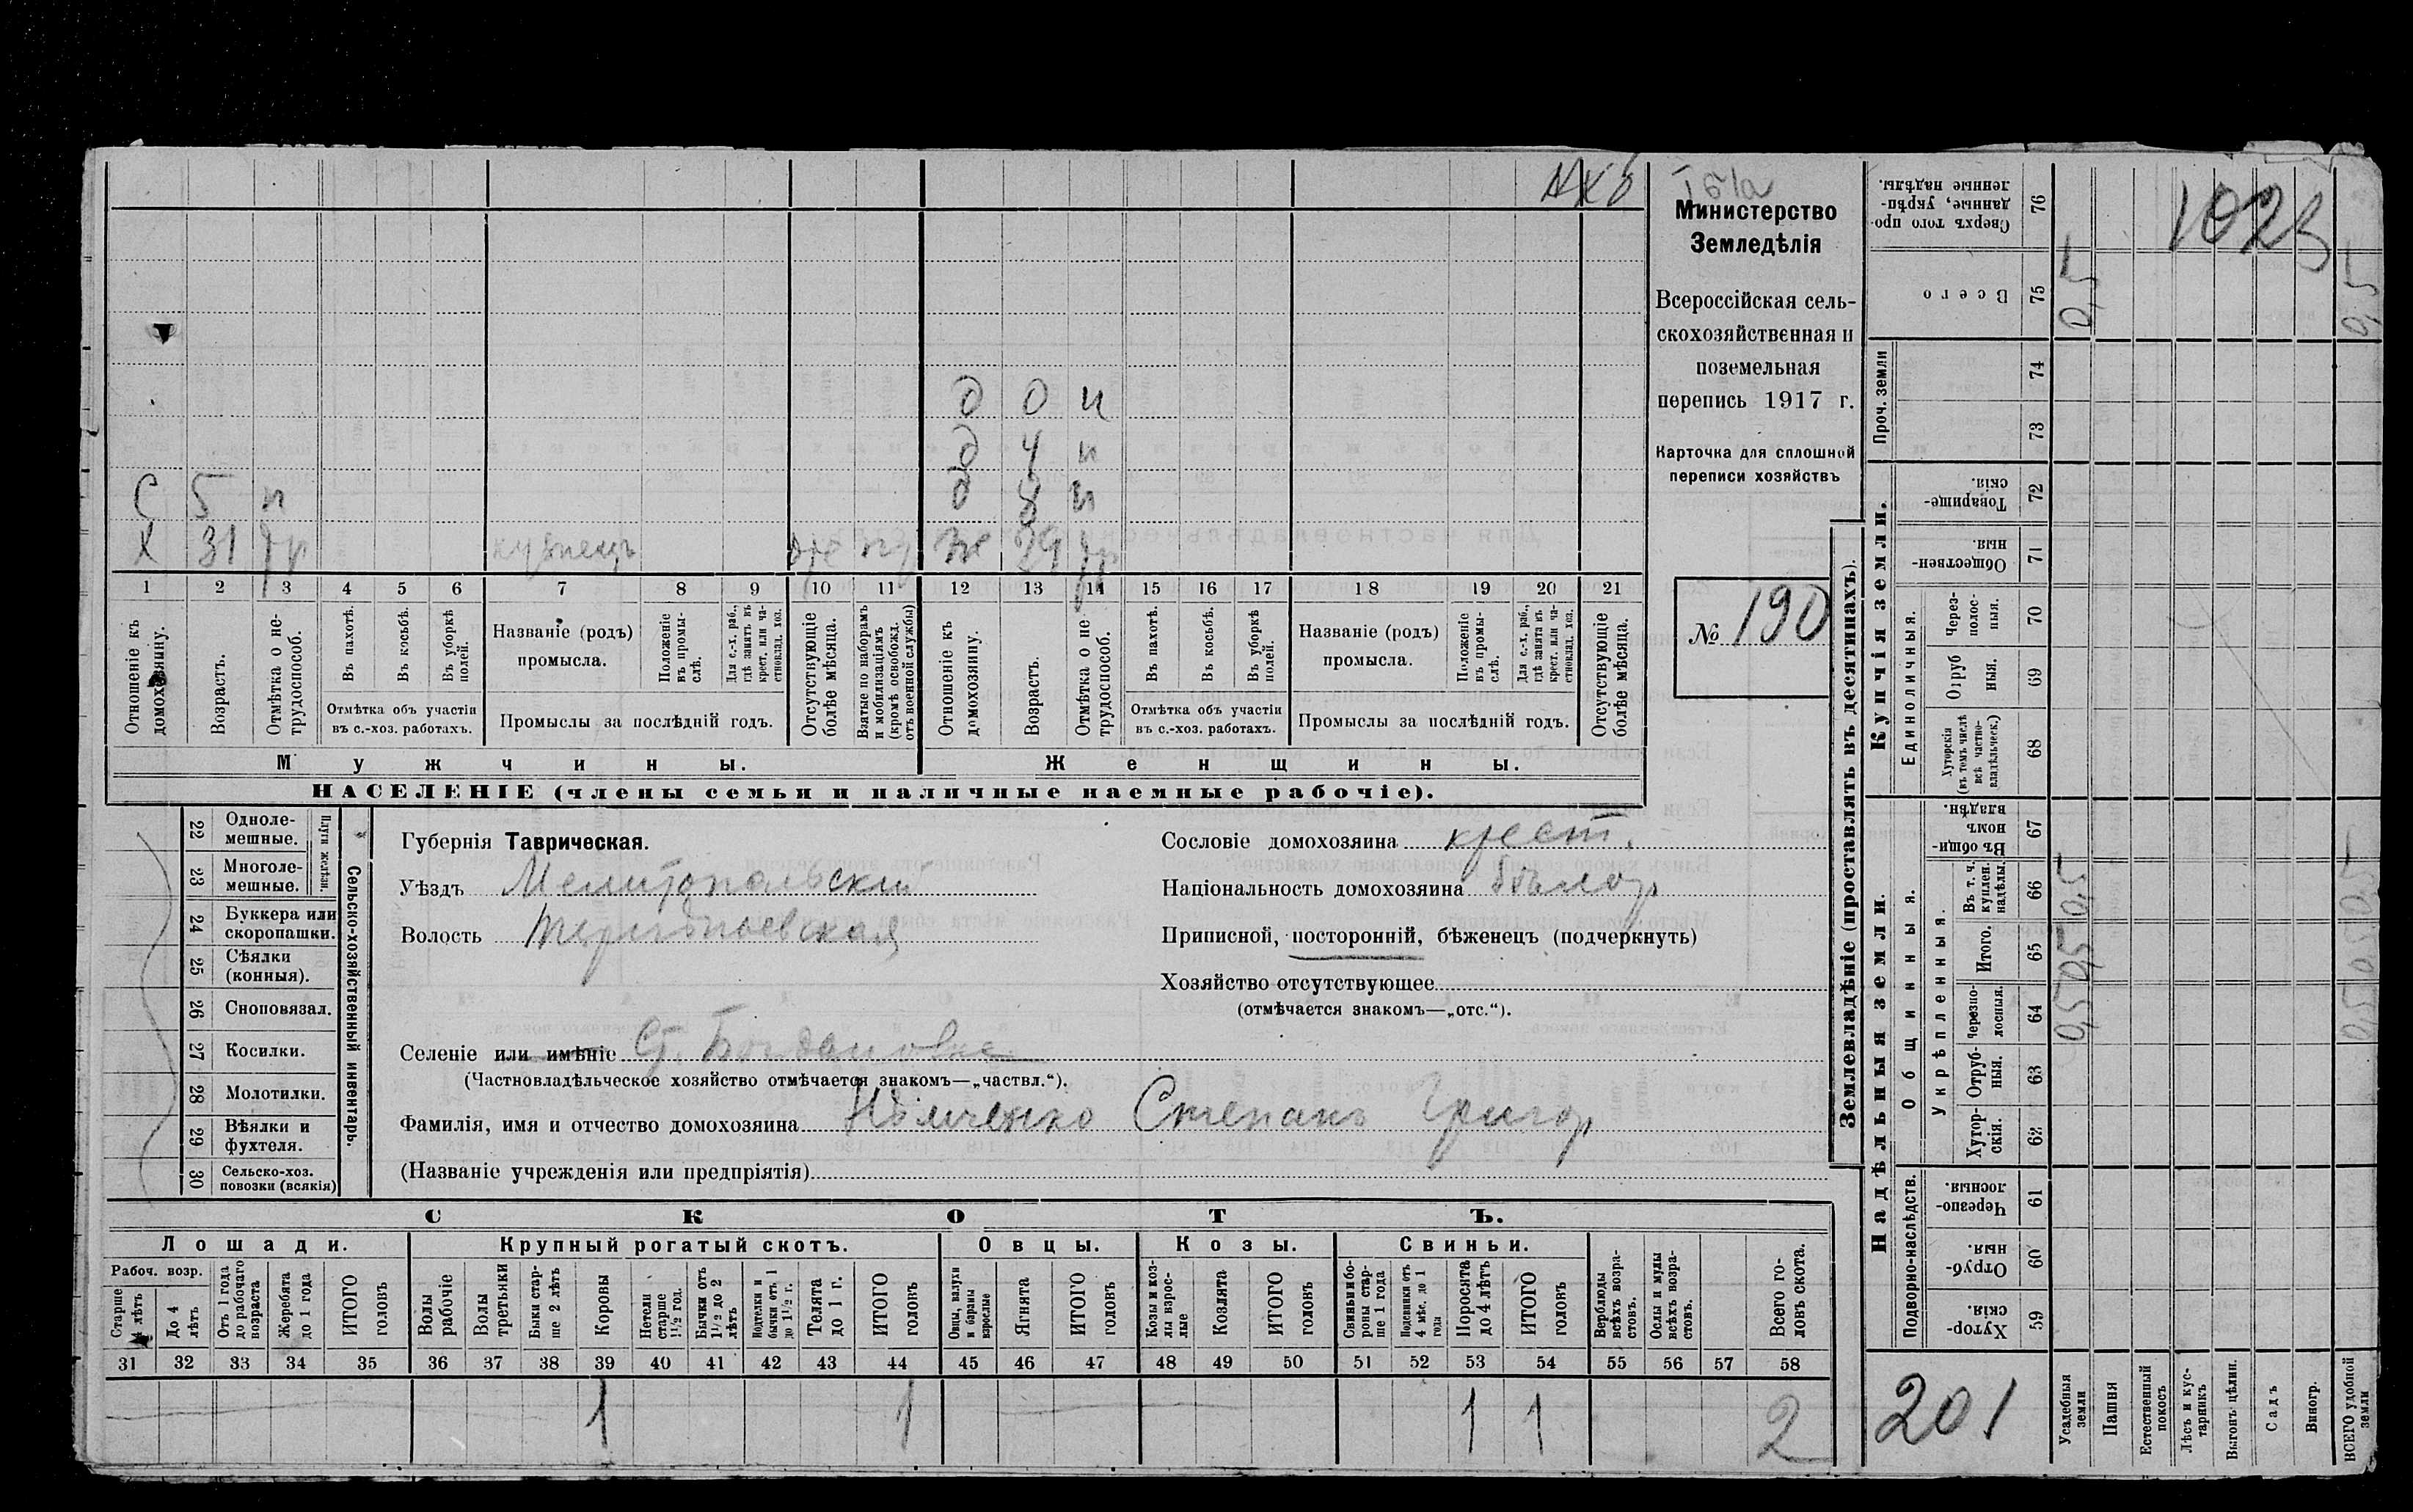 Министерство
Земледѣлія
Всероссійская сель-
скохозяйственная и
поземельная
перепись 1917 г.
Карточка для сплошной
переписи хозяйствъ
№ 190
д 0 н
д 4 н
С 5 н д 8 н
Х 31 гр кузнецъ же 29 гр
1 2 3 4 5 6 7 8 9 10 11 12 13 14 15 16 17 18 19 20 21
Отношеніе къ домохозяину.
Возрастъ.
Отмѣтка о не-трудоспособ.
Въ пахотѣ.
Въ косьбѣ.
Въ уборкѣ полей.
Отмѣтка объ участіи
въ с.-хоз. работахъ.
Названіе (родъ)
промысла.
Положеніе въ промы-слѣ.
Для с.-х. раб., гдѣ занятъ въ крест. или ча-стновлад. хоз.
Промыслы за послѣдній годъ.
Отсутствующіе болѣе мѣсяца.
Взятые по наборамъ и мобилизаціямъ (кромѣ освобожд. отъ военной службы)
Отношеніе къ домохозяину.
Возрастъ.
Отмѣтка о не-трудоспособ.
Въ пахотѣ.
Въ косьбѣ.
Въ уборкѣ полей.
Отмѣтка объ участіи
въ с.-хоз. работахъ.
Названіе (родъ)
промысла.
Положеніе въ промы-слѣ.
Для с.-х. раб., гдѣ занята въ крест. или ча-стновлад. хоз.
Промыслы за послѣдній годъ.
Отсутствующіе болѣе мѣсяца.
Мужчины. Женщины.
НАСЕЛЕНІЕ (члены семьи и наличные наемные рабочіе).
22 Одноле-мешные.
23 Многоле-мешные.
Плуги желѣзн.
24 Буккера или скоропашки.
25 Сѣялки (конныя).
26 Сноповязал.
27 Косилки.
28 Молотилки.
29 Вѣялки и фухтеля.
30 Сельско-хоз. повозки (всякія)
Сельско-хозяйственный инвентарь.
Губернія Таврическая.
Уѣздъ Мелитопольскій
Волость Терпѣніевская
Селеніе или имѣніе С. Богдановка
(Частновладѣльческое хозяйство отмѣчается знакомъ—„частвл.“).
Фамилія, имя и отчество домохозяина Нѣмченко Степанъ Григор
(Названіе учрежденія или предпріятія)
Сословіе домохозяина крест.
Національность домохозяина
Приписной, посторонній, бѣженецъ (подчеркнуть)
Хозяйство отсутствующее
(отмѣчается знакомъ—„отс.“).
СКОТЪ.
Лошади. Крупный рогатый скотъ. Овцы. Козы. Свиньи.
Рабоч. возр.
Старше 4 лѣтъ
До 4 лѣтъ
Отъ 1 года до рабочаго возраста
Жеребята до 1 года
ИТОГО головъ
Волы рабочіе
Волы третьяки
Быки стар-ше 2 лѣтъ
Коровы
Нетели старше 1½ год.
Бычки отъ 1½ до 2 лѣтъ
Подтелки и бычки отъ 1 до 1½ г.
Телята до 1 г.
ИТОГО головъ
Овцы, валухи и бараны взрослые
Ягнята
ИТОГО головъ
Козы и коз-лы взрос-лые
Козлята
ИТОГО головъ
Свиньи и бо-ровы стар-ше 1 года
Подсвинки отъ 4 мѣс. до 1 года
Поросята до 4 лѣтъ
ИТОГО головъ
Верблюды всѣхъ возра-стовъ.
Ослы и мулы всѣхъ возра-стовъ.
Всего го-ловъ скота.
31 32 33 34 35 36 37 38 39 40 41 42 43 44 45 46 47 48 49 50 51 52 53 54 55 56 57 58
1 1 1 1 2
Землевладѣніе (проставлять въ десятинахъ).
Купчія земли.
Надѣльныя земли.
Сверхъ того про-данные, укрѣп-ленные надѣлы. 76
Всего 75 0,5
Проч. земли 74 73
Товарище-скія. 72
Обществен-ныя. 71
Единоличныя.
Через-полос-ныя. 70
Отруб ныя. 69
Хуторскія (въ томъ числѣ всѣ частно-владѣльческ.) 68
Въ общин-номъ владѣн. 67
Общинныя.
Укрѣпленныя.
Въ т. ч. куплен. надѣлы. 66 0,5
Итого. 65 0,5
Черезпо-лосныя. 64 0,5
Отруб-ныя. 63
Хутор-скія. 62
Подворно-наслѣдств.
Черезпо-лосныя. 61
Отруб-ныя. 60
Хутор-скія. 59
1023
0,5
201
Усадебныя земли
Пашня
Естественный покосъ
Лѣсъ и кус-тарникъ
Выгонъ цѣлин.
Садъ
Виногр.
ВСЕГО удобной земли